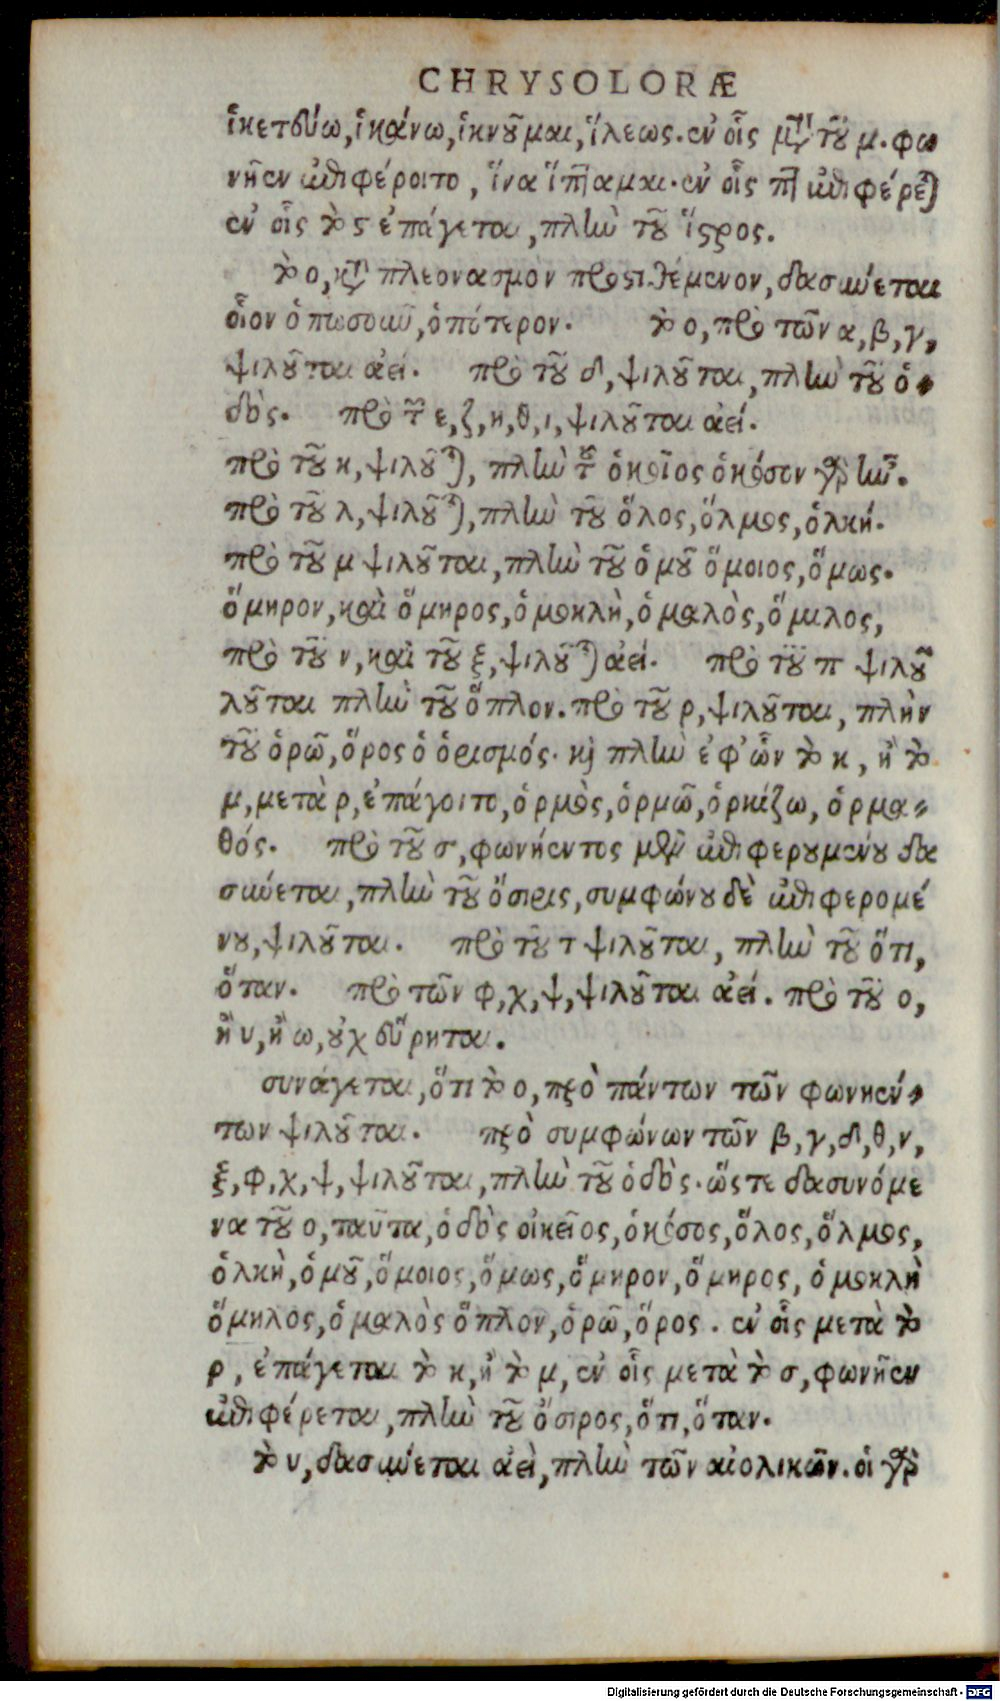 CHRYSOLORÆ
ἱκετεύω, ἱκάνω, ἱκνοῦμαι, ἵλεως. ἐν οἷς μετὰ τοῦ μ. φω
νῆεν ἐπιφέροιτο, ἵνα ἵπταμαι. ἐν οἷς π ἐπιφέρεται
ἐν οἷς τὸ ς ἐπάγεται, πλὴν τοῦ ἵστρος.
τὸ ο, κατὰ πλεονασμὸν προστιθέμενον, δασύνεται
οἷον ὁπωσοῦν, ὁπότερον. τὸ ο, πρὸ τῶν α, β, γ,
ψιλοῦται ἀεί. πρὸ τοῦ δ, ψιλοῦται, πλὴν τοῦ ὁ-
δὸς. πρὸ τῶν ε, ζ, η, θ, ι, ψιλοῦται ἀεί.
πρὸ τοῦ κ, ψιλοῦται, πλὴν τοῦ ὁκοῖος ὁκόσον
πρὸ τοῦ λ, ψιλοῦται, πλὴν τοῦ ὅλος, ὅλμος, ὁλκή.
πρὸ τοῦ μ ψιλοῦται, πλὴν τοῦ ὁμοῦ ὅμοιος, ὅμως.
ὅμηρον, καὶ ὅμηρος, ὁμοκλὴ, ὁμαλὸς, ὅμιλος,
πρὸ τοῦ ν, καὶ τοῦ ξ, ψιλοῦται ἀεί. πρὸ τοῦ π ψιλοῦ
λοῦται πλὴν τοῦ ὅπλον. πρὸ τοῦ ρ, ψιλοῦται, πλὴν
τοῦ ὁρῶ, ὅρος ὁ ὁρισμός. καὶ πλὴν ἐφ' ὧν τὸ κ, ἢ τὸ
μ, μετὰ ρ, ἐπάγοιτο, ὁρμὸς, ὁρμῶ, ὁρκίζω, ὁρμα-
θός. πρὸ τοῦ σ, φωνήεντος μὲν ἐπιφερουμένου δα
σύνεται, πλὴν τοῦ ὄσιρις, συμφώνου δὲ ἐπιφερομέ
νου, ψιλοῦται. πρὸ τοῦ τ ψιλοῦται, πλὴν τοῦ ὅτι,
ὅταν. πρὸ τῶν φ, χ, ψ, ψιλοῦται ἀεί. πρὸ τοῦ ο,
ἢ υ, ἢ ω, οὐχ εὕρηται.
συνάγεται, ὅτι τὸ ο, πρὸ πάντων τῶν φωνηέν-
των ψιλοῦται. πρὸ συμφώνων τῶν β, γ, δ, θ, ν,
ξ, φ, χ, ψ, ψιλοῦται, πλὴν τοῦ ὁδὸς. ὥστε δασυνόμε
να τοῦ ο, ταῦτα, ὁδὸς οἰκεῖος, ὁκόσος, ὅλος, ὅλμος,
ὁλκὴ, ὁμοῦ, ὅμοιος, ὅμως, ὅμηρον, ὅμηρος, ὁμοκλὴ
ὅμηλος, ὁμαλὸς ὅπλον, ὁρῶ, ὅρος. ἐν οἷς μετὰ τὸ
ρ, ἐπάγεται τὸ κ, ἢ τὸ μ, ἐν οἷς μετὰ τὸ σ, φωνῆεν
ἐπιφέρεται, πλὴν τοῦ ὄσιρος, ὅτι, ὅταν.
τὸ υ, δασύνεται ἀεὶ, πλὴν τῶν αἰολικῶν. οἱ γὰρ
Digitalisierung gefördert durch die Deutsche Forschungsgemeinschaft - DFG